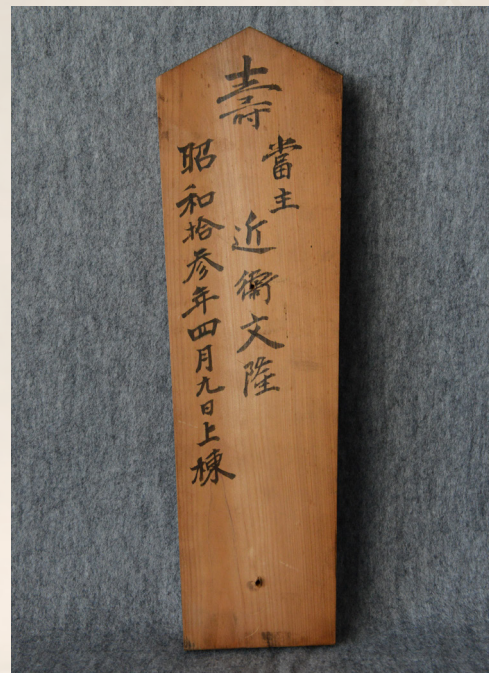 壽
當主
近衛文隆
昭和拾参年四月九日上棟